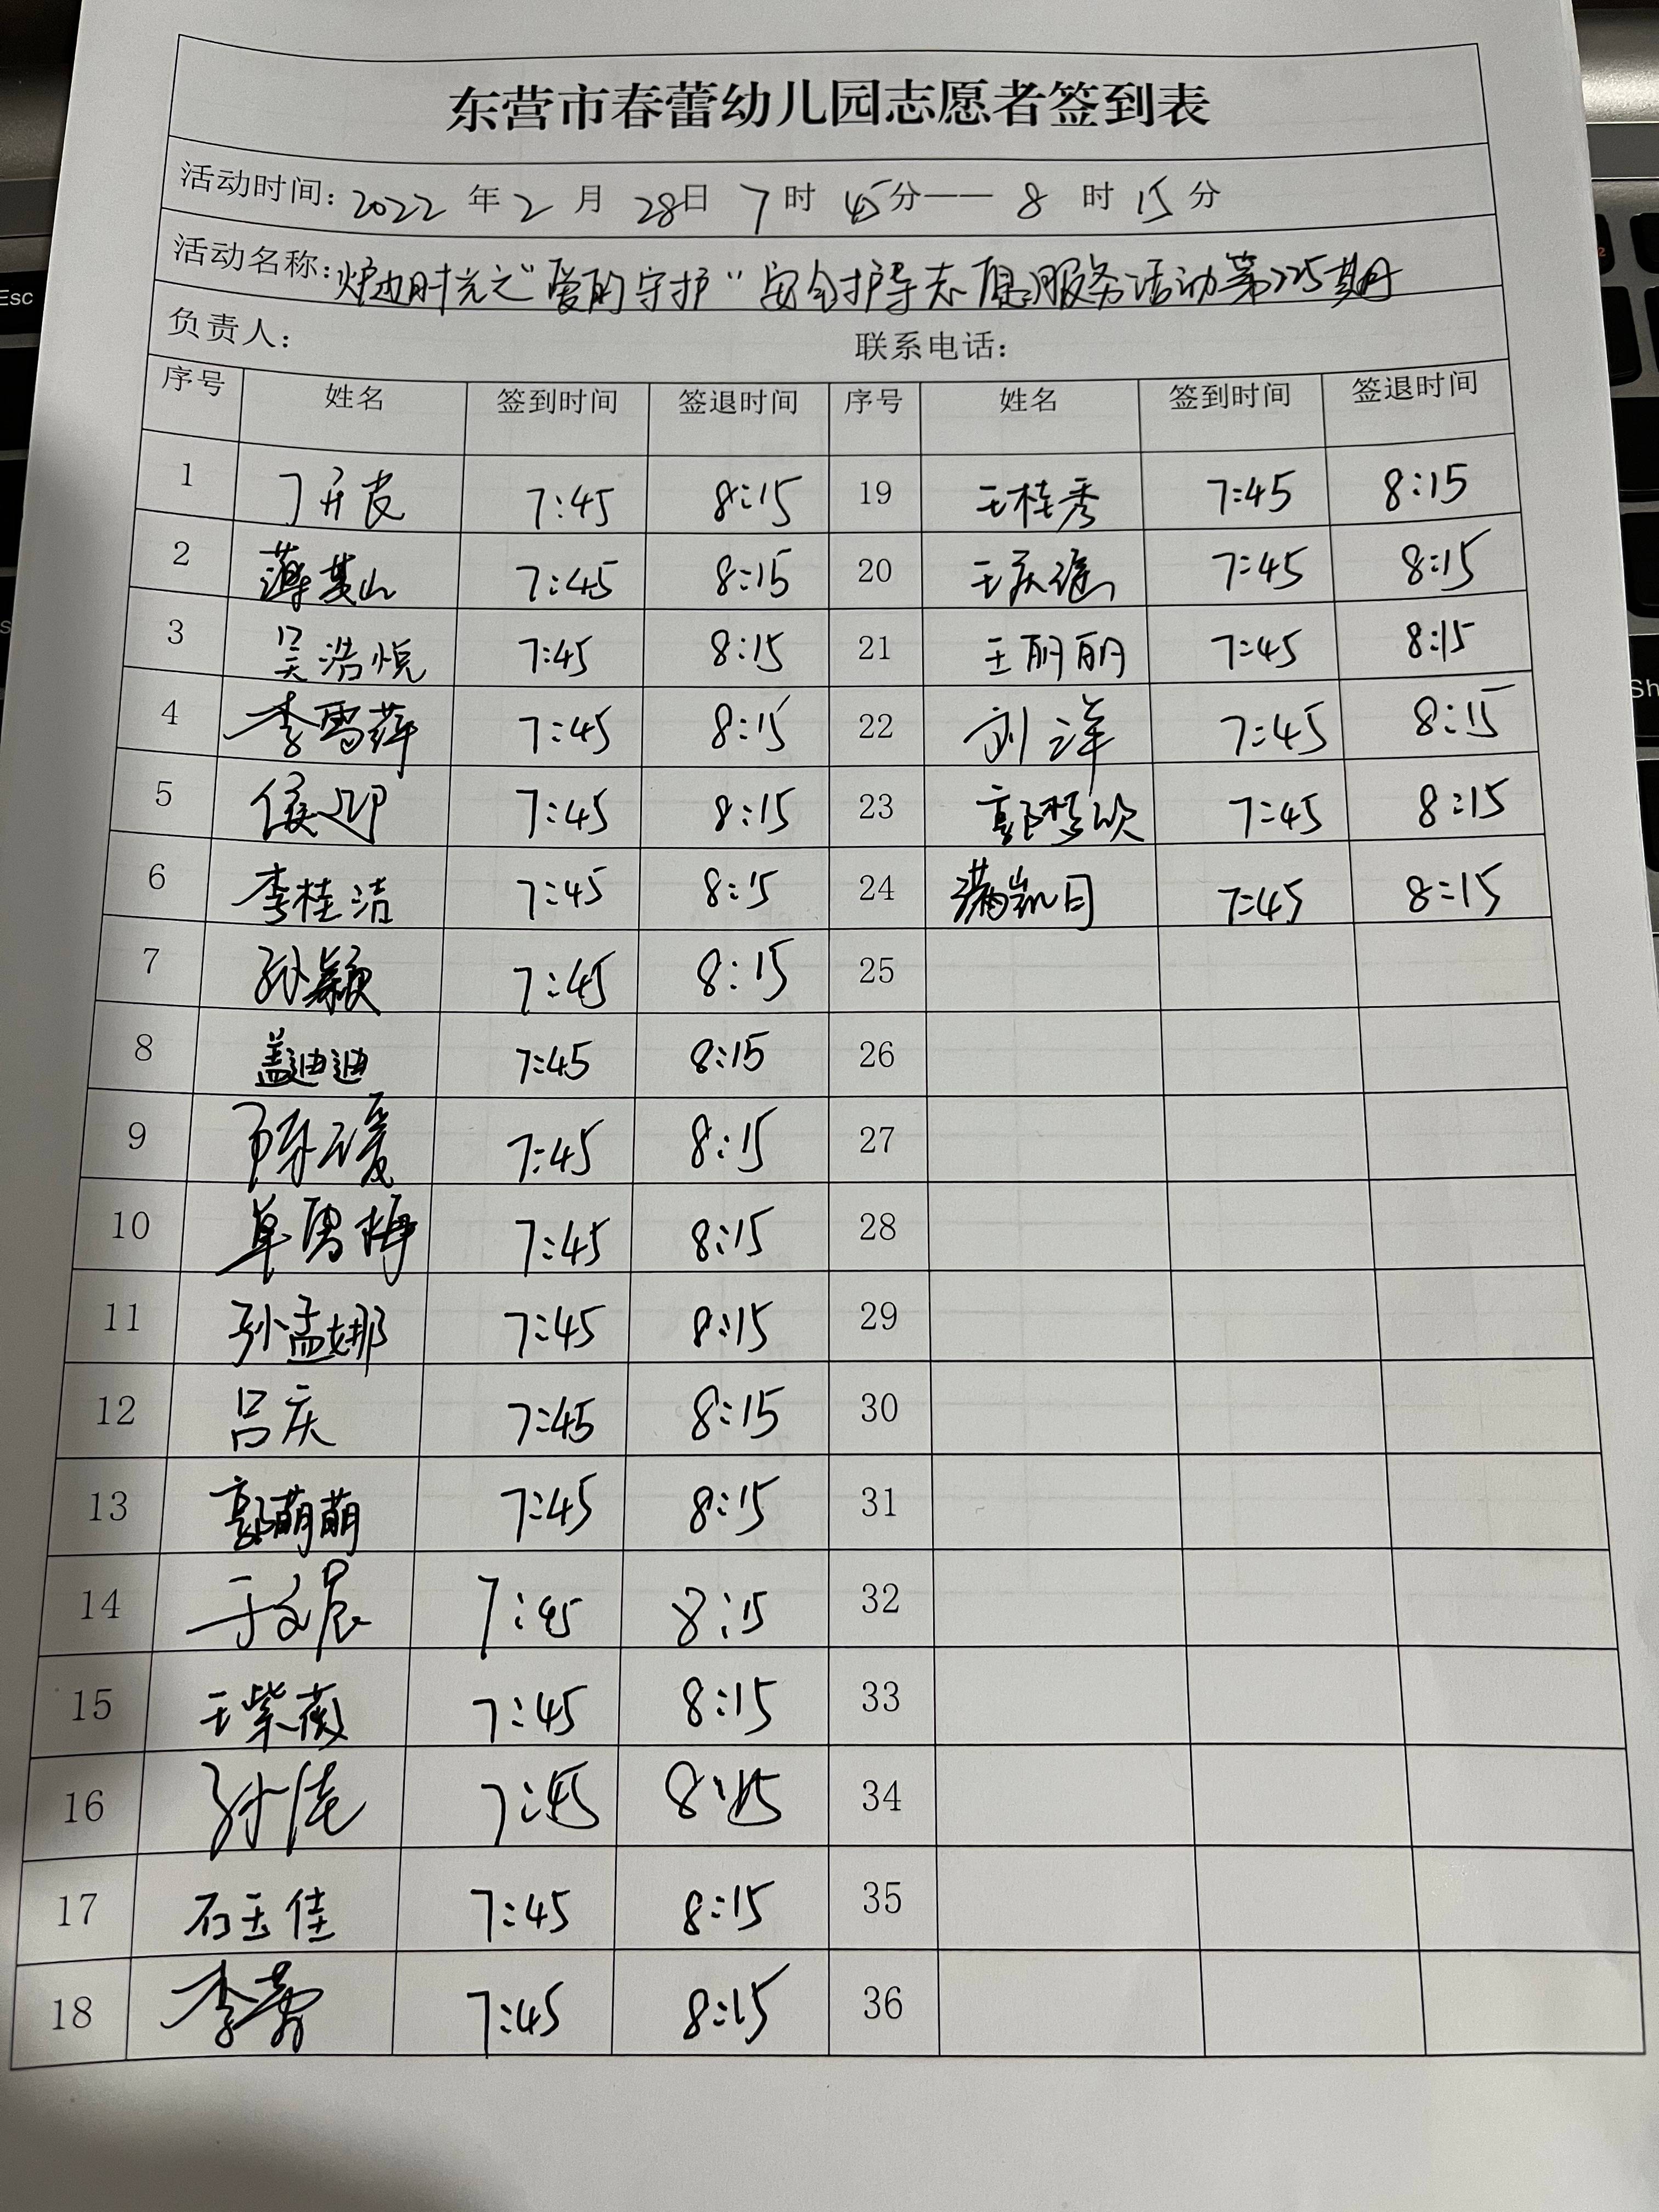 东营市春蕾幼儿园志愿者签到表
活动时间: 2022 年 2 月 28日 7 时 45分—— 8 时 15 分
活动名称: 炉边时光之"爱的守护"安全护导志愿服务活动第225期
负责人: 联系电话:
序号 姓名 签到时间 签退时间 序号 姓名 签到时间 签退时间
1 7:45 8:15 19 王桂秀 7:45 8:15
2 薄英山 7:45 8:15 20 王庆瑶 7:45 8:15
3 吴浩悦 7:45 8:15 21 王丽丽 7:45 8:15
4 李雪萍 7:45 8:15 22 刘洋 7:45 8:15
5 7:45 8:15 23 郭梦欣 7:45 8:15
6 李桂洁 7:45 8:15 24 满凯日 7:45 8:15
7 孙颖 7:45 8:15 25
8 盖迪迪 7:45 8:15 26
9 陈瑗 7:45 8:15 27
10 单男梅 7:45 8:15 28
11 孙孟娜 7:45 8:15 29
12 吕庆 7:45 8:15 30
13 郭萌萌 7:45 8:15 31
14 于文晨 7:45 8:15 32
15 王紫薇 7:45 8:15 33
16 7:45 8:15 34
17 石玉佳 7:45 8:15 35
18 7:45 8:15 36
Esc